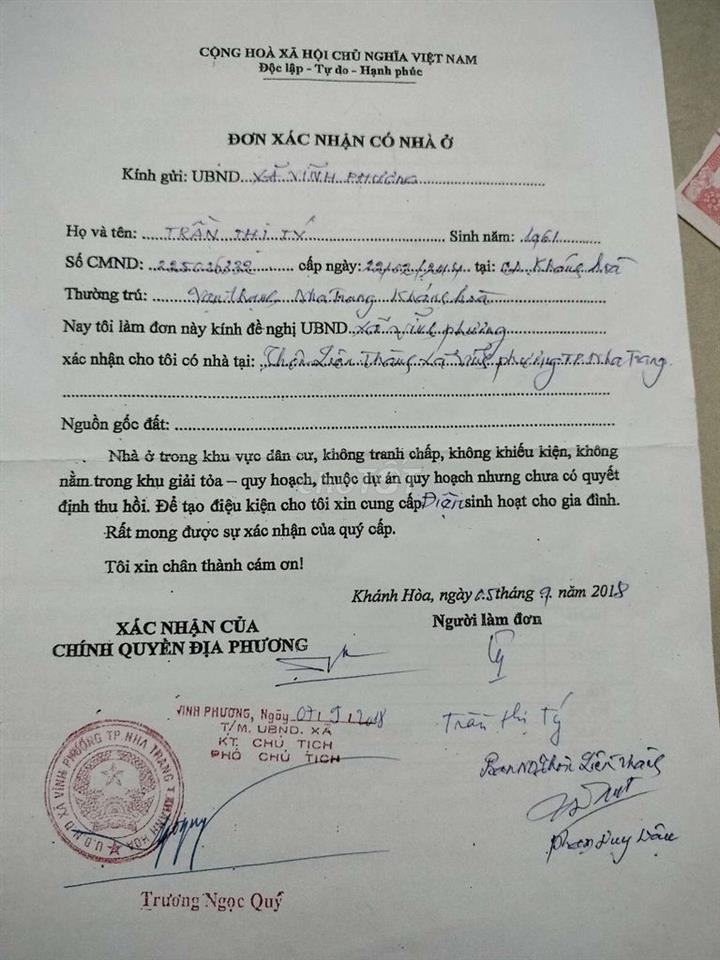 CỘNG HOÀ XÃ HỘI CHỦ NGHĨA VIỆT NAM
Độc lập - Tự do - Hạnh phúc
ĐƠN XÁC NHẬN CÓ NHÀ Ở
Kính gửi: UBND XÃ VĨNH PHƯƠNG
Họ và tên: TRẦN THỊ TÝ Sinh năm: 1961
Số CMND: cấp ngày: tại: CA Khánh hoà
Thường trú: Vạn Thạnh Nha Trang Khánh hoà
Nay tôi làm đơn này kính đề nghị UBND xã vĩnh phương
xác nhận cho tôi có nhà tại: Thôn Liên Thành xã Vĩnh phương TP. Nha Trang
Nguồn gốc đất:
Nhà ở trong khu vực dân cư, không tranh chấp, không khiếu kiện, không
nằm trong khu giải tỏa – quy hoạch, thuộc dự án quy hoạch nhưng chưa có quyết
định thu hồi. Để tạo điệu kiện cho tôi xin cung cấp Điện sinh hoạt cho gia đình.
Rất mong được sự xác nhận của quý cấp.
Tôi xin chân thành cám ơn!
Khánh Hòa, ngày 05 tháng 9 năm 2018
XÁC NHẬN CỦA
CHÍNH QUYỀN ĐỊA PHƯƠNG
Người làm đơn
VĨNH PHƯƠNG, Ngày 07/9/2018
T/M. UBND. XÃ
KT. CHỦ TỊCH
PHÓ CHỦ TỊCH
Trần Thị Tý
U.B.N.D XÃ VĨNH PHƯƠNG TP. NHA TRANG T. KHÁNH HÒA
Thôn Liên Thành
Phan Duy
Trương Ngọc Quý
chợTỐT